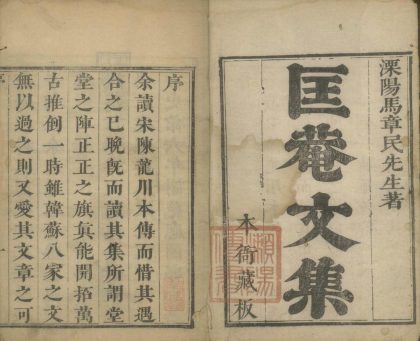 溧陽馬章民先生著
匡菴文集
本衙藏板
序
余讀宋陳龍川本傳而惜其遇
合之已晚旣而讀其集所謂堂
堂之陣正正之旗眞能開拓萬
古推倒一時雖韓蘇八家之文
無以過之則又愛其文章之可
序